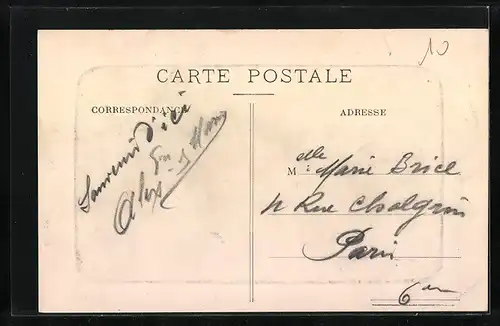 10
CARTE POSTALE
CORRESPONDANCE
ADRESSE
Souvenir d'ici
Alex
Melle Marie Brice
Rue Chalgrin
Paris
6